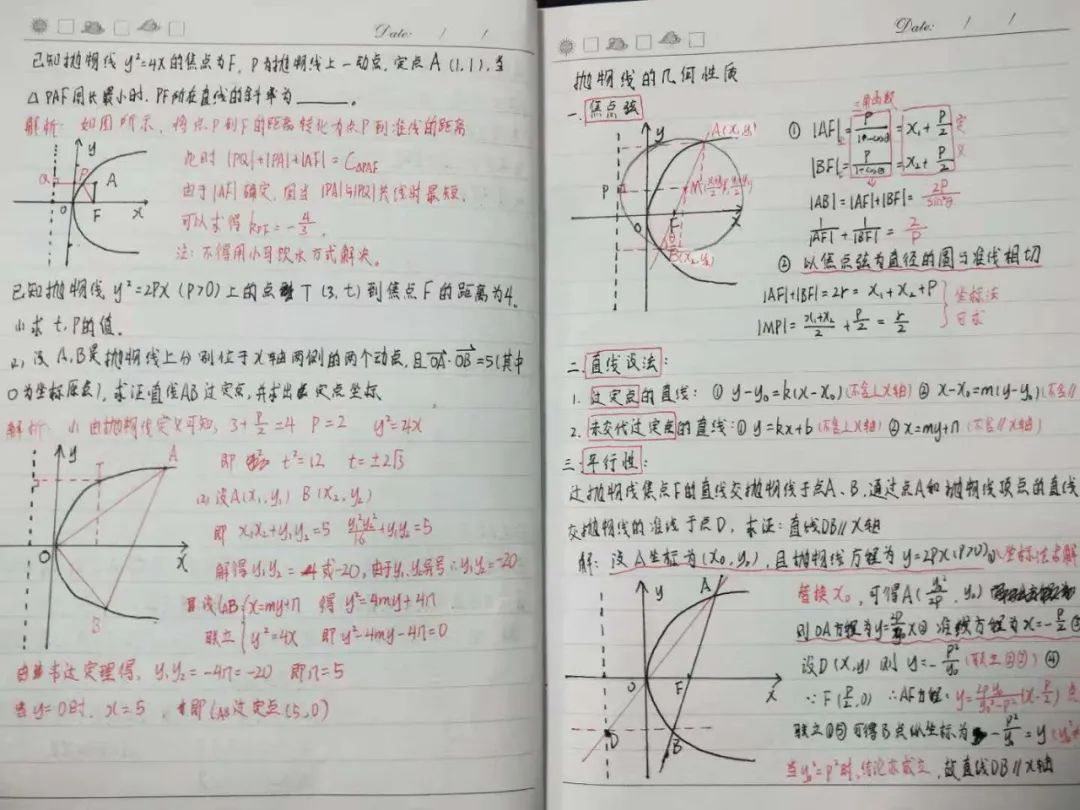 Date: / /
已知抛物线 y²=4x 的焦点为F, P为抛物线上一动点, 定点 A (1,1), 当
△PAF周长最小时, PF所在直线的斜率为______。
解析: 如图所示, 将点P到F的距离转化为点P到准线的距离
此时 |PQ|+|PA|+|AF| = C△PAF
由于|AF|确定, 因当 |PA|与|PQ|共线时最短,
可以求得 kPF = -4/3,
注: 不得用小马饮水方式解决。
y
Q P A
O F x
已知抛物线 y²=2px (p>0) 上的点 T (3, t) 到焦点 F 的距离为4.
(1) 求 t, P的值.
(2) 设 A,B是抛物线上分别位于x轴两侧的两个动点, 且OA·OB=5(其中
O为坐标原点), 求证直线AB过定点, 并求出定点坐标
解析: (1) 由抛物线定义可知, 3+P/2=4 P=2 y²=4x
即 t²=12 t=±2√3
(2) 设A(x₁,y₁) B(x₂,y₂)
即 x₁x₂+y₁y₂=5 y₁²y₂²/16+y₁y₂=5
解得y₁y₂ = 4或-20, 由于y₁,y₂异号∴y₁y₂=-20
设lAB: x=my+n 得 y²=4my+4n
联立 y²=4x 即y²-4my-4n=0
y
T A
O x
B
由韦达定理得, y₁y₂=-4n=-20 即n=5
当y=0时, x=5, 即lAB过定点(5,0)
Date: / /
抛物线的几何性质
一. 焦点弦
三角函数
① |AF|= P/(1-cosθ) = x₁+P/2 定
|BF|= P/(1+cosθ) = x₂+P/2 义
|AB|=|AF|+|BF|= 2P/sin²θ
1/|AF| + 1/|BF| = 2/P
② 以焦点弦为直径的圆与准线相切
|AF|+|BF|=2r= x₁+x₂+P
|MP|= (x₁+x₂)/2 + P/2 = r/2
坐标法
可求
y
A(x₁,y₁)
P
F
x
O
B(x₂,y₂)
二. 直线设法:
1. 过定点的直线: ① y-y₀=k(x-x₀)(不含⊥x轴) ② x-x₀=m(y-y₀)(不含//
2. 未交代过定点的直线: ① y=kx+b (不含⊥x轴) ② x=my+n (不含//x轴)
三. 平行性:
过抛物线焦点F的直线交抛物线于点A、B, 通过点A和抛物线顶点的直线
交抛物线的准线于点D, 求证: 直线DB//x轴
解: 设A坐标为(x₀,y₀), 且抛物线方程为y=2px(p>0)
替换x₀, 可得A(y₀²/2p, y₀)
则OA方程为y=2p/y₀ x② 准线方程为x=-P/2③
设D(x,y) 则 y=-P²/y₀ (联立②③) ④
∵F(P/2,0) ∴AF方程: y=2py₀/(y₀²-p²)(x-P/2)
联立①⑤可得B点纵坐标为 -P²/y₀=y
当y₀²=P²时, 结论亦成立, 故直线DB//x轴
y
A
O F x
D
B